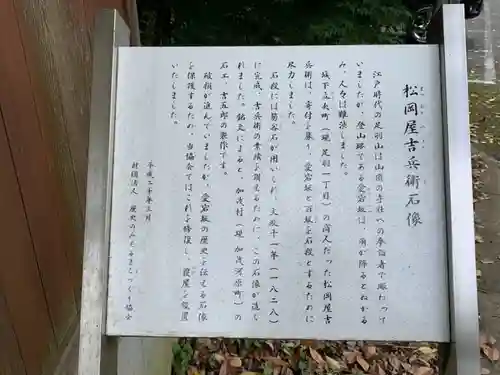 松岡屋吉兵衛石像
江戸時代の足羽山は山頂の寺社への参詣者で賑わって
いましたが、登山路である愛宕坂は、雨が降るとぬかる
み、人々は難渋しました。
城下
町（現 足羽一丁目）の商人だった松岡屋吉
兵衛は、寄付を募り、愛宕坂と百坂を石段とするために
尽力しました。
石段には笏谷石が用いられ、文政十一年（一八二八）
に完成、吉兵衛の業績を讃えるために、この石像が造ら
れました。銘文によると、加茂村（現 加茂河原町）の
石工、吉五郎の製作です。
破損が進んでいましたが、愛宕坂の歴史を伝える石像
を保護するため、当協会ではこれを修復し、覆屋を設置
いたしました。
平成二十年三月
財団法人 歴史のみえるまちづくり協会